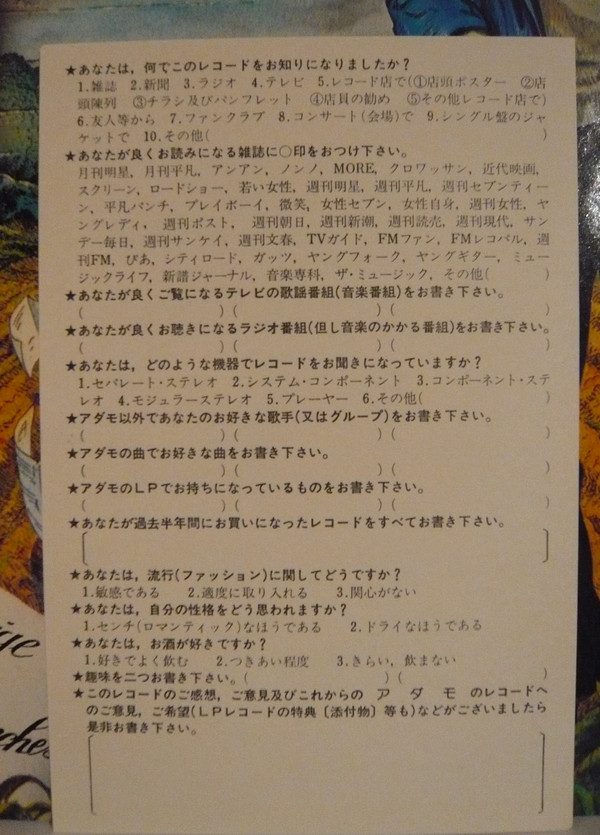 ★あなたは，何でこのレコードをお知りになりましたか？
1.雑誌 2.新聞 3.ラジオ 4.テレビ 5.レコード店で(①店頭ポスター ②店
頭陳列 ③チラシ及びパンフレット ④店員の勧め ⑤その他レコード店で)
6.友人等から 7.ファンクラブ 8.コンサート(会場)で 9.シングル盤のジャ
ケットで 10.その他( )
★あなたが良くお読みになる雑誌に○印をおつけ下さい。
月刊明星，月刊平凡，アンアン，ノンノ，MORE，クロワッサン，近代映画，
スクリーン，ロードショー，若い女性，週刊明星，週刊平凡，週刊セブンティー
ン，平凡パンチ，プレイボーイ，微笑，女性セブン，女性自身，週刊女性，ヤ
ングレディ，週刊ポスト，週刊朝日，週刊新潮，週刊読売，週刊現代，サン
デー毎日，週刊サンケイ，週刊文春，TVガイド，FMファン，FMレコパル，週
刊FM，ぴあ，シティロード，ガッツ，ヤングフォーク，ヤングギター，ミュー
ジックライフ，新譜ジャーナル，音楽専科，ザ・ミュージック，その他( )
★あなたが良くご覧になるテレビの歌謡番組(音楽番組)をお書き下さい。
( ) ( ) ( )
★あなたが良くお聴きになるラジオ番組(但し音楽のかかる番組)をお書き下さい。
( ) ( ) ( )
★あなたは，どのような機器でレコードをお聞きになっていますか？
1.セパレート・ステレオ 2.システム・コンポーネント 3.コンポーネント・ステ
レオ 4.モジュラーステレオ 5.プレーヤー 6.その他( )
★アダモ以外であなたのお好きな歌手(又はグループ)をお書き下さい。
( ) ( ) ( )
★アダモの曲でお好きな曲をお書き下さい。
( ) ( ) ( )
★アダモのLPでお持ちになっているものをお書き下さい。
( ) ( ) ( )
★あなたが過去半年間にお買いになったレコードをすべてお書き下さい。
[ ]
★あなたは，流行(ファッション)に関してどうですか？
1.敏感である 2.適度に取り入れる 3.関心がない
★あなたは，自分の性格をどう思われますか？
1.センチ(ロマンティック)なほうである 2.ドライなほうである
★あなたは，お酒が好きですか？
1.好きでよく飲む 2.つきあい程度 3.きらい，飲まない
★趣味を二つお書き下さい。( ) ( )
★このレコードのご感想，ご意見及びこれからの アダモ のレコードへ
のご意見，ご希望(LPレコードの特典〔添付物〕等も)などがございましたら
是非お書き下さい。
[ ]